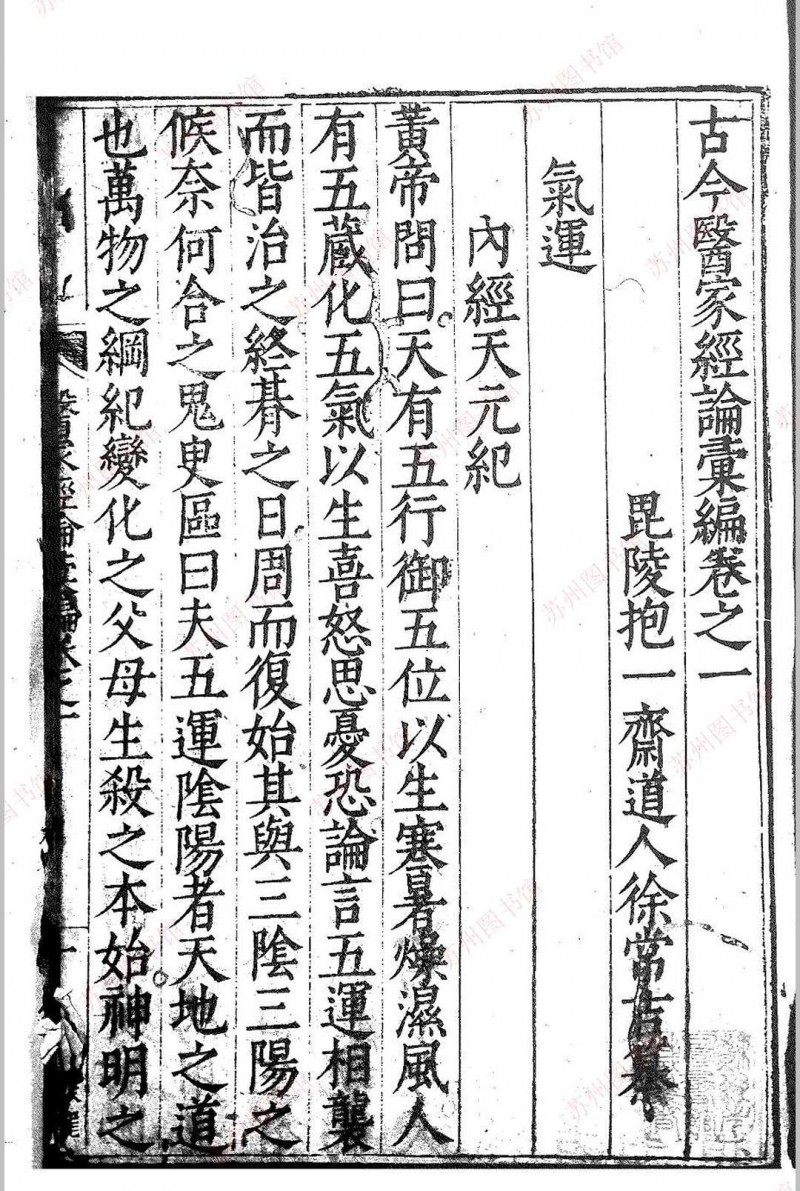 古今醫家經論彙編卷之一
毘陵抱一齋道人徐常吉
氣運
內經天元紀
黃帝問曰天有五行御五位以生寒暑燥濕風人
有五蔵化五氣以生喜怒思憂恐論言五運相襲
而皆治之終朞之日周而復始其與三陰三陽之
候奈何合之鬼臾區曰夫五運陰陽者天地之道
也萬物之綱紀變化之父母生殺之本始神明之
苏州图书馆